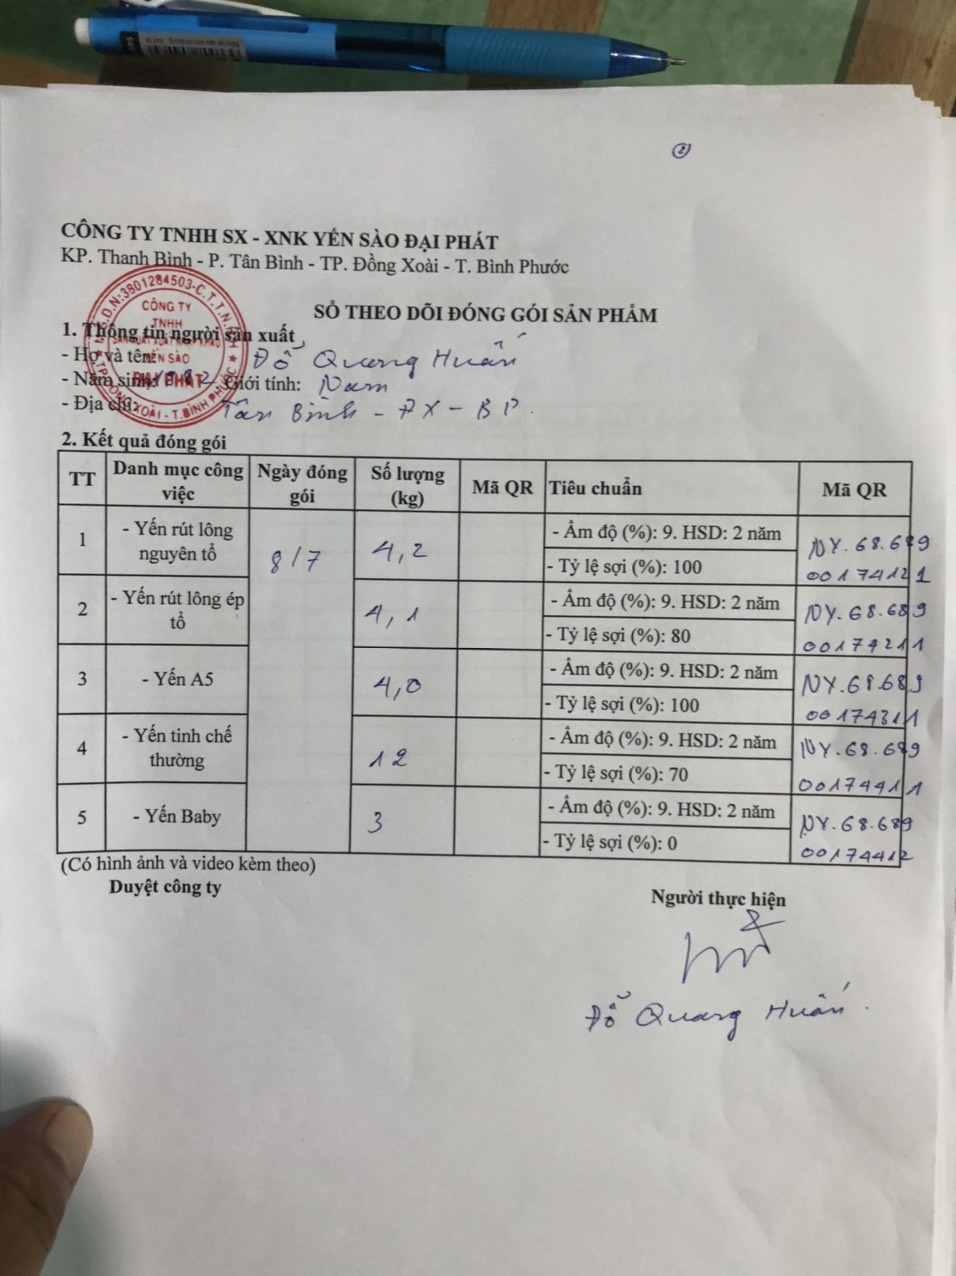 ②
CÔNG TY TNHH SX - XNK YẾN SÀO ĐẠI PHÁT
KP. Thanh Bình - P. Tân Bình - TP. Đồng Xoài - T. Bình Phước
SỔ THEO DÕI ĐÓNG GÓI SẢN PHẨM
M.S.D.N:3801284503-C.T.T.N.H.H
CÔNG TY
TNHH
YẾN SÀO
ĐẠI PHÁT
TP. ĐỒNG XOÀI - T. BÌNH PHƯỚC
1. Thông tin người sản xuất
- Họ và tên: Đỗ Quang Huấn
- Năm sinh: 1982 Giới tính: Nam
- Địa chỉ: Tân Bình - ĐX - BP.
2. Kết quả đóng gói
TT Danh mục công việc Ngày đóng gói Số lượng (kg) Mã QR Tiêu chuẩn Mã QR
1 - Yến rút lông nguyên tổ 8/7 4,2 - Ẩm độ (%): 9. HSD: 2 năm NY.68.689
- Tỷ lệ sợi (%): 100 00174121
2 - Yến rút lông ép tổ 4,1 - Ẩm độ (%): 9. HSD: 2 năm NY.68.689
- Tỷ lệ sợi (%): 80 00174211
3 - Yến A5 4,0 - Ẩm độ (%): 9. HSD: 2 năm NY.68.689
- Tỷ lệ sợi (%): 100 00174311
4 - Yến tinh chế thường 12 - Ẩm độ (%): 9. HSD: 2 năm NY.68.689
- Tỷ lệ sợi (%): 70 00174411
5 - Yến Baby 3 - Ẩm độ (%): 9. HSD: 2 năm NY.68.689
- Tỷ lệ sợi (%): 0 00174412
(Có hình ảnh và video kèm theo)
Duyệt công ty Người thực hiện
Đỗ Quang Huấn.